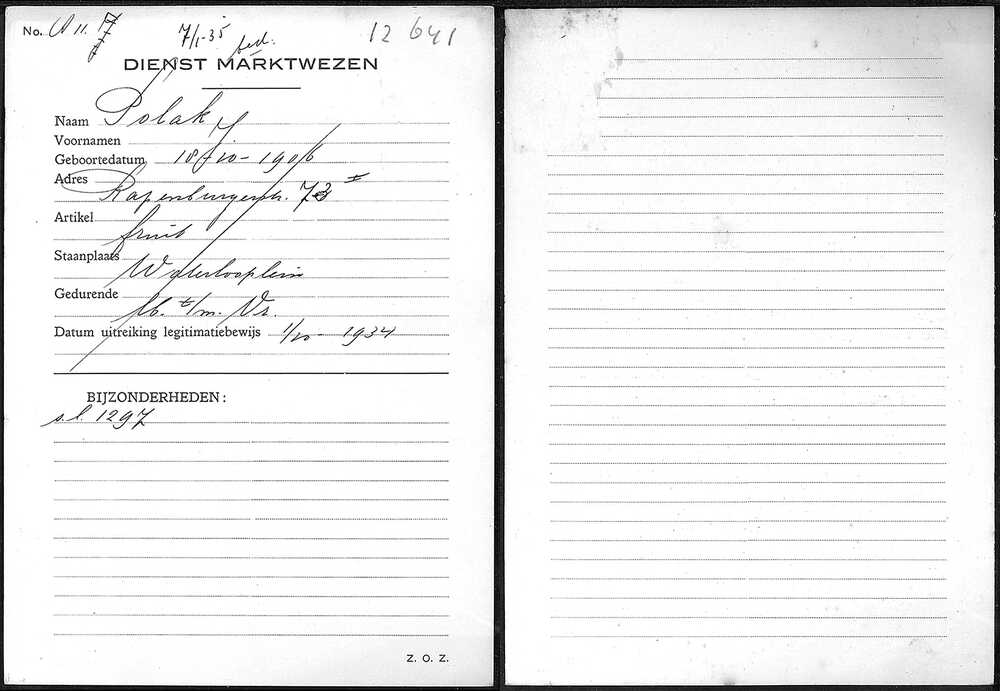 No. A 11.
7/1-35 bed.
12 641
DIENST MARKTWEZEN
Naam Polak,
Voornamen
Geboortedatum 18-10-1906
Adres
Rapenburgerstr. 73 I
Artikel
fruit
Staanplaats
Waterlooplein
Gedurende
Mo. t/m. Vr.
Datum uitreiking legitimatiebewijs 1/10-1934
BIJZONDERHEDEN:
s.l. 1297
Z. O. Z.